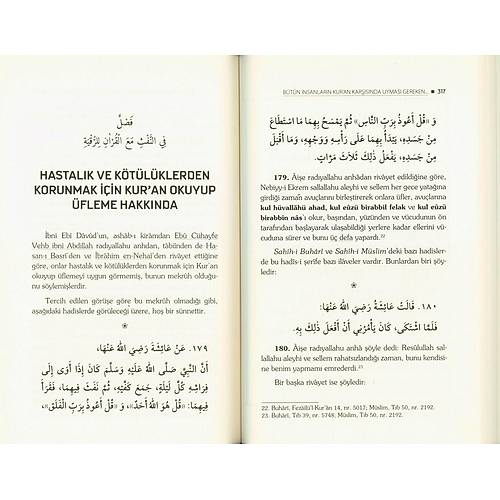 فَصْلٌ
فِي النَّفْثِ مَعَ الْقُرْاٰنِ لِلرُّقْيَةِ
HASTALIK VE KÖTÜLÜKLERDEN
KORUNMAK İÇİN KUR'AN OKUYUP
ÜFLEME HAKKINDA
İbni Ebî Dâvûd'un, ashâb-ı kirâmdan Ebû Cühayfe
Vehb ibni Abdillah radıyallahu anhdan, tâbiînden de Ha-
san-ı Basrî'den ve İbrâhim en-Nehaî'den rivâyet ettiğine
göre, onlar hastalık ve kötülüklerden korunmak için Kur'an
okuyup üflemeyi uygun görmemiş, bunun mekrûh olduğu-
nu söylemişlerdir.
Tercih edilen görüşe göre bu mekrûh olmadığı gibi,
aşağıdaki hadislerde görüleceği üzere, hoş bir sünnettir.
*
١٧٩. عَنْ عَائِشَةَ رَضِيَ اللهُ عَنْهَا،
أَنَّ النَّبِيَّ صَلَّى اللهُ عَلَيْهِ وَسَلَّمَ كَانَ إِذَا أَوَى إِلَى
فِرَاشِهِ كُلَّ لَيْلَةٍ، جَمَعَ كَفَّيْهِ، ثُمَّ نَفَثَ فِيهِمَا، فَقَرَأَ
فِيهِمَا: «قُلْ هُوَ اللهُ أَحَدٌ»، وَ «قُلْ أَعُوذُ بِرَبِّ الْفَلَقِ»،
BÜTÜN İNSANLARIN KUR'AN KARŞISINDA UYMASI GEREKEN... ■ 317
وَ «قُلْ أَعُوذُ بِرَبِّ النَّاسِ» ثُمَّ يَمْسَحُ بِهِمَا مَا اسْتَطَاعَ
مِنْ جَسَدِهِ، يَبْدَأُ بِهِمَا عَلَى رَأْسِهِ وَوَجْهِهِ، وَمَا أَقْبَلَ
مِنْ جَسَدِهِ، يَفْعَلُ ذٰلِكَ ثَلَاثَ مَرَّاتٍ.
179. Âişe radıyallahu anhâdan rivâyet edildiğine göre,
Nebiyy-i Ekrem sallallahu aleyhi ve sellem her gece yatağına
girdiği zaman avuçlarını birleştirerek onlara üfler, avuçlarına
kul hüvallâhü ahad, kul eûzü birabbil felak ve kul eûzü
birabbin nâs'ı okur, başından, yüzünden ve vücudunun ön
tarafından başlayarak ulaşabildiği yerlere kadar ellerini vü-
cuduna sürer ve bunu üç defa yapardı.²²
Sahîh-i Buhârî ve Sahîh-i Müslim'deki bazı hadisler-
de bu hadîs-i şerîfe bazı ilâveler vardır. Bunlardan biri şöy-
ledir:
*
١٨٠. قَالَتْ عَائِشَةُ رَضِيَ اللهُ عَنْهَا:
فَلَمَّا اشْتَكَى، كَانَ يَأْمُرُنِي أَنْ أَفْعَلَ ذٰلِكَ بِهِ.
180. Âişe radıyallahu anhâ şöyle dedi: Resûlullah sal-
lallahu aleyhi ve sellem rahatsızlandığı zaman, bunu kendisi-
ne benim yapmamı emrederdi.²³
Bir başka rivâyet ise şöyledir:
22. Buhârî, Fezâilü'l Kur'ân 14, nr. 5017; Müslim, Tıb 50, nr. 2192.
23. Buhârî, Tıb 39, nr. 5748; Müslim, Tıb 50, nr. 2192.